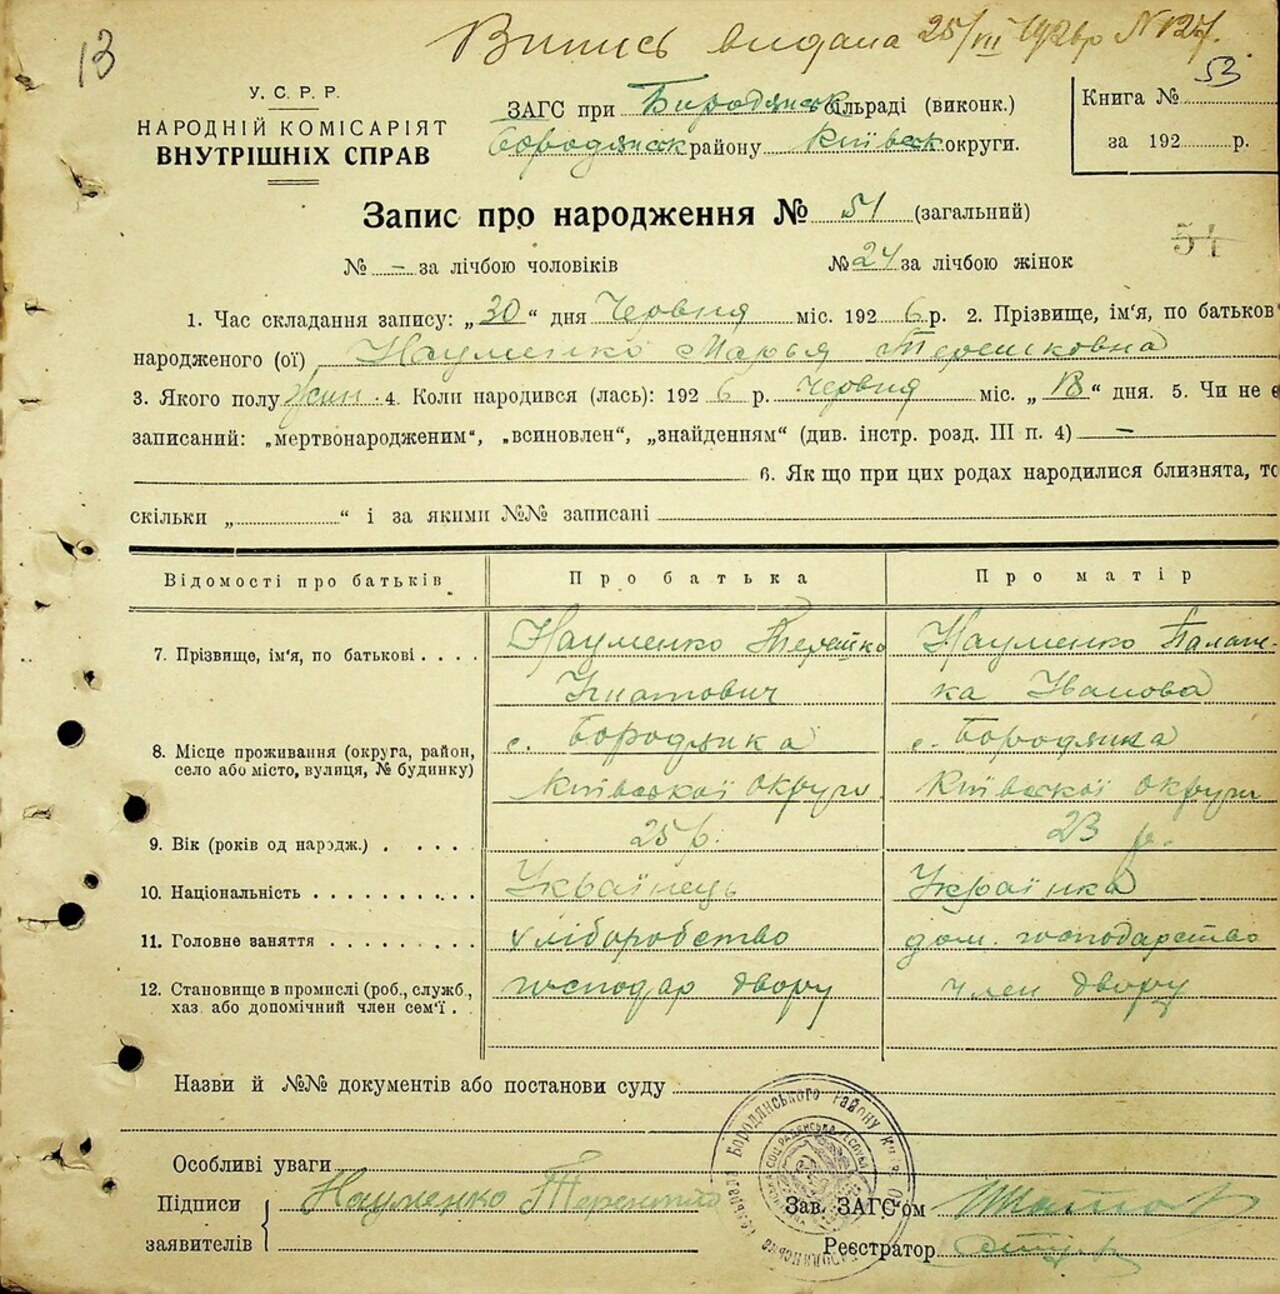 13
Випись видана 25/VII 1926р N 127.
53
У. С. Р. Р.
НАРОДНІЙ КОМІСАРІЯТ
ВНУТРІШНІХ СПРАВ
ЗАГС при Бородянськ сільраді (виконк.)
Бородянск району Київск округи.
Книга №
за 192 р.
Запис про народження № 51 (загальний)
54
№ – за лічбою чоловіків № 24 за лічбою жінок
1. Час складання запису: „30“ дня Червня міс. 1926 р. 2. Прізвище, ім'я, по батьков
народженого (ої) Науменко Марья Терешковна
3. Якого полу жин. 4. Коли народився (лась): 1926 р. червня міс. „18“ дня. 5. Чи не є
записаний: „мертвонародженим“, „всиновлен“, „знайденням“ (див. інстр. розд. III п. 4) –
6. Як що при цих родах народилися близнята, то
скільки „ “ і за якими №№ записані
Відомості про батьків Про батька Про матір
7. Прізвище, ім'я, по батькові . . . . Науменко Терешко Науменко Палаж-
Игнатович ка Иванова
8. Місце проживання (округа, район, село або місто, вулиця, № будинку) с. Бородянка с. Бородянка
Київської округи Київської округи
9. Вік (років од народж.) . . . . . 25 р. 23 р.
10. Національність . . . . . . . . . . Українець Українка
11. Головне заняття . . . . . . . . . хліборобство дом. господарство
12. Становище в промислі (роб., служб., хаз. або допомічний член сем'ї . господар двору член двору
Назви й №№ документів або постанови суду
Особливі уваги
Підписи
заявителів
Науменко Терентий
Зав. ЗАГС'ом
Реєстратор
Бородянського району